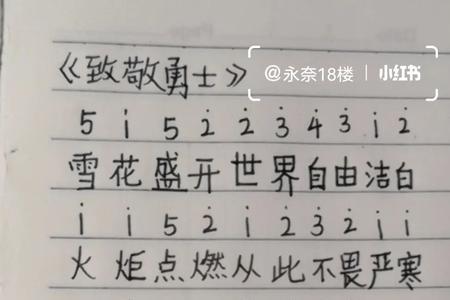 《致敬勇士》
@永奈18楼 | 小红书
5 i 5 2̇ 2̇ 3̇ 4̇ 3̇ i 2̇
雪花盛开世界自由洁白
i i 5 2̇ i 2̇ 3̇ 2̇ i i
火炬点燃从此不畏严寒